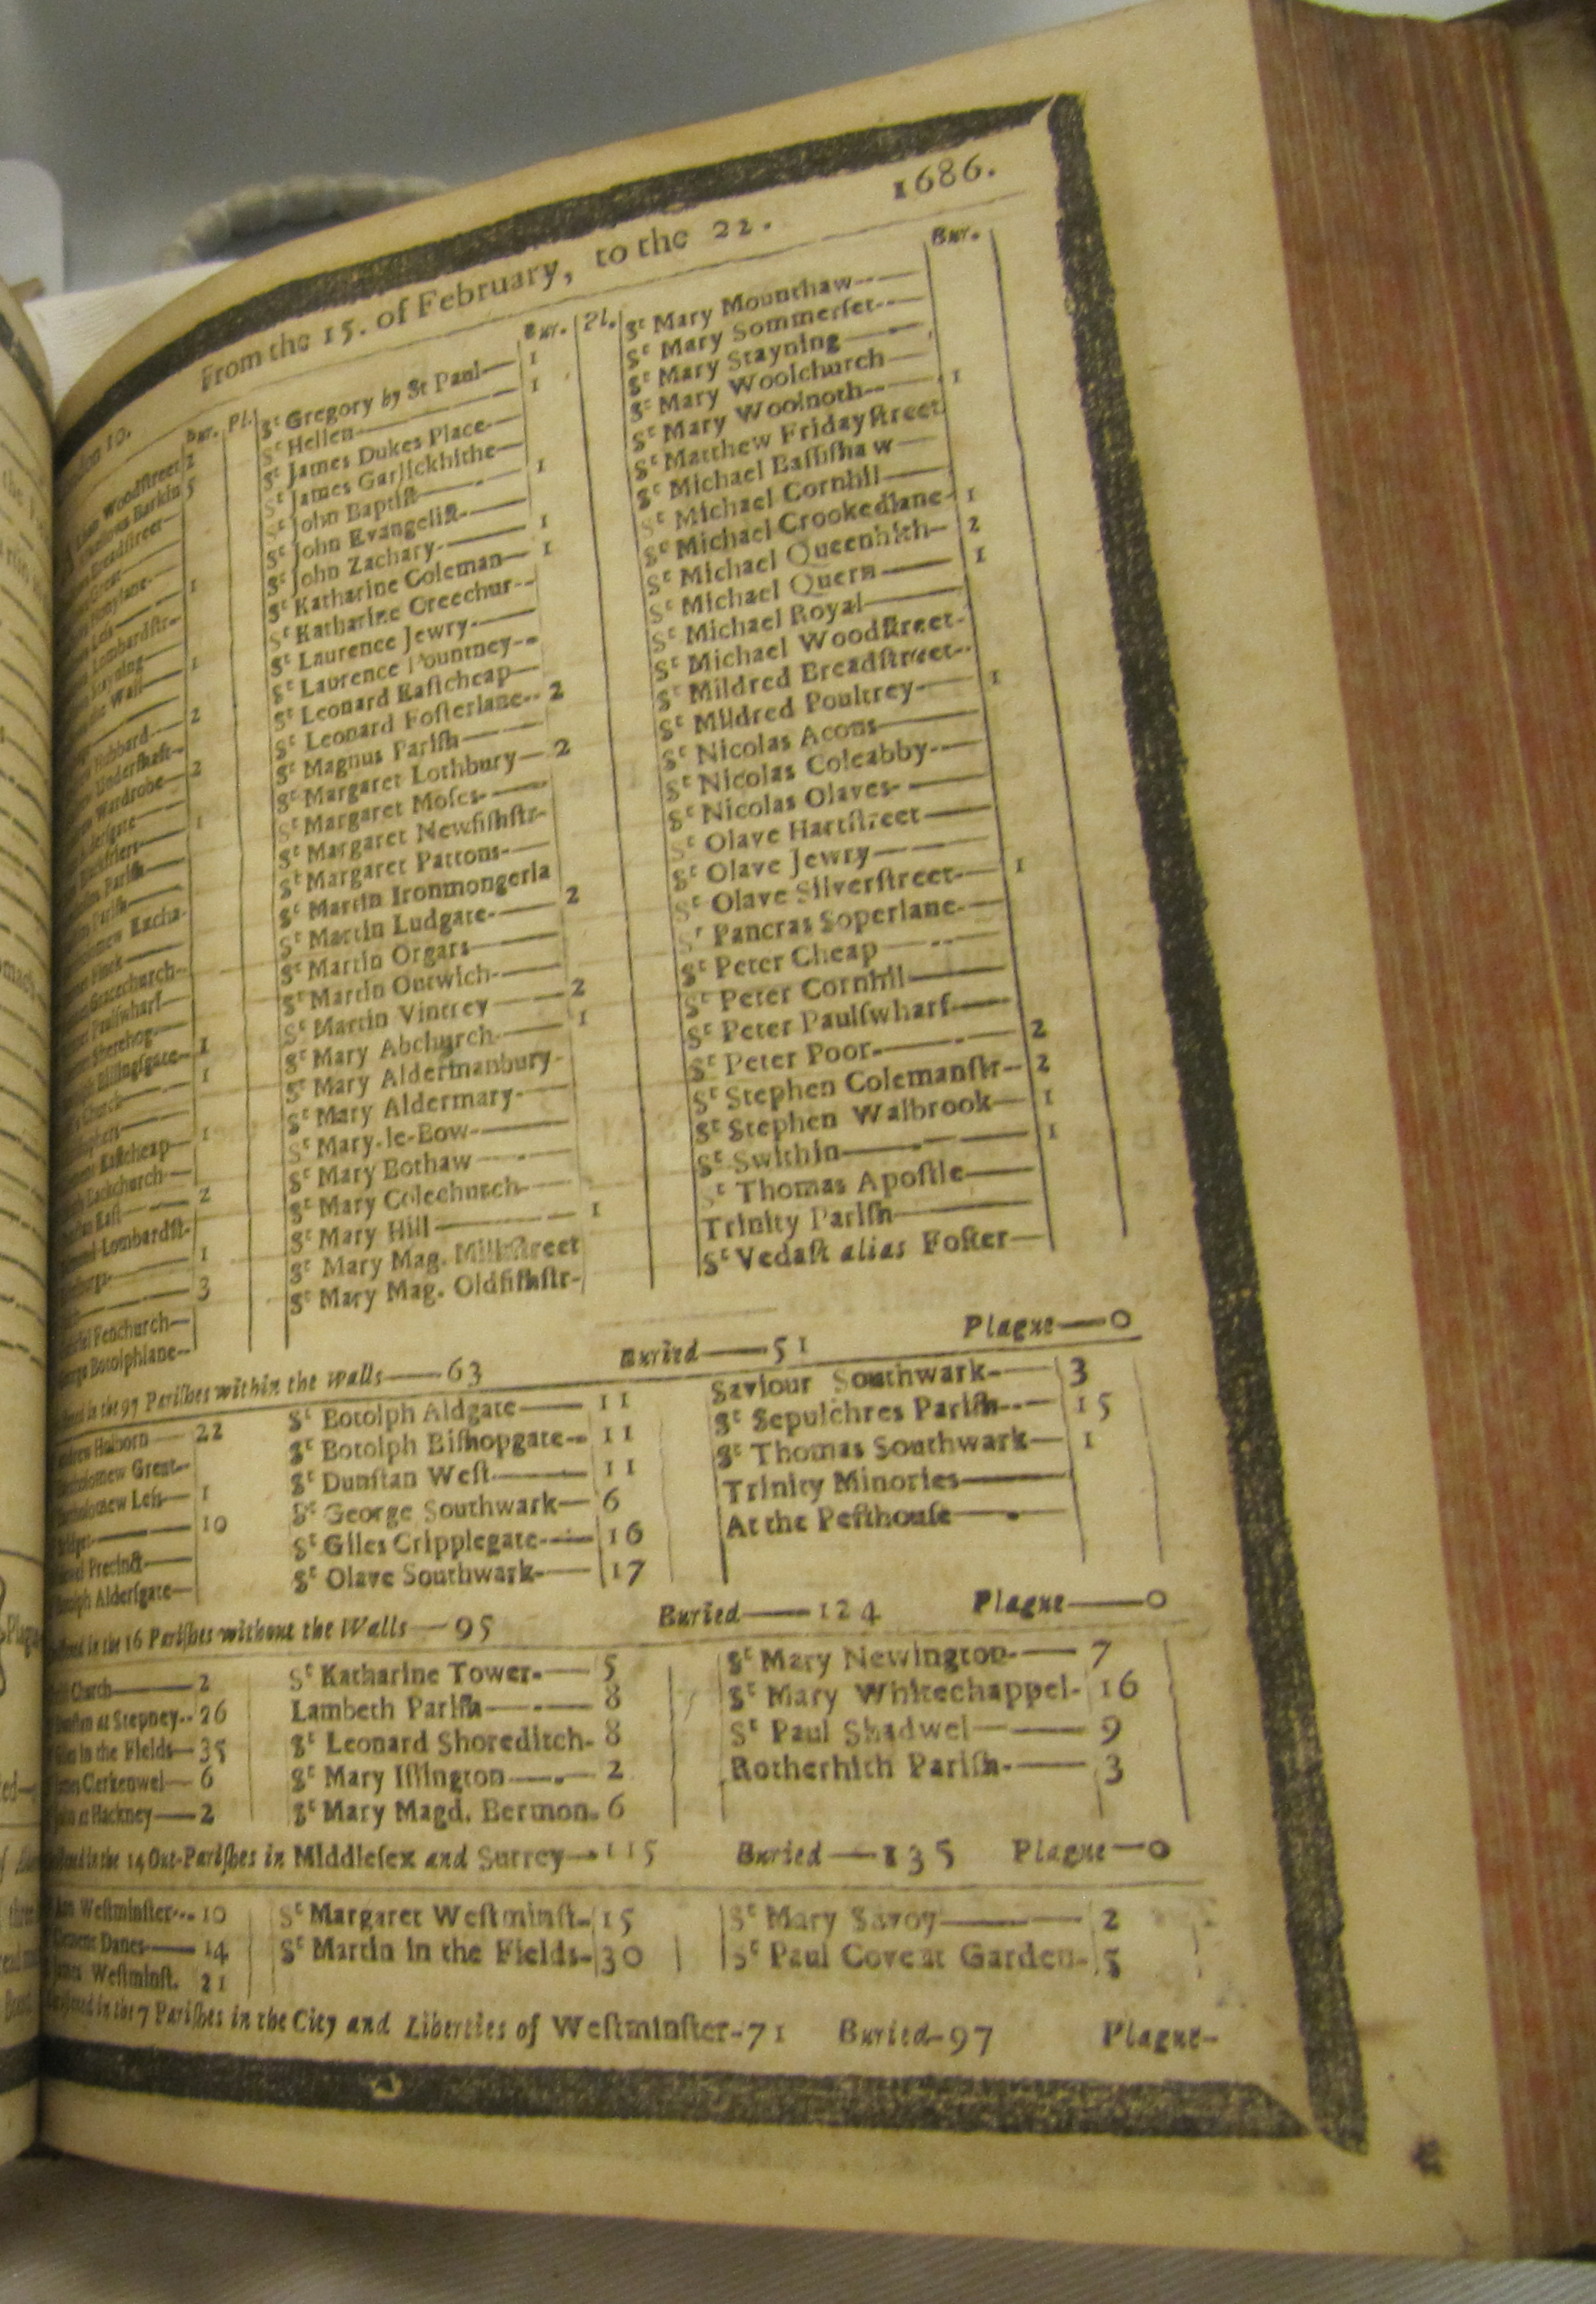 From the 15. of February, to the 22. 1686.
Bur. Pl.
Woodſtreet 2
Barkin 5
Breadſtreet—
1
Lombardſtr--
Stayning—
Wall— 1
Hubbard— 2
Underſhaft--
Wardrobe— 2
1
Pariſh—
Gracechurch--
Paulſwharf—
Sherehog—
Billingſgate-- 1
Church— 1
Eaſtcheap— 1
Backchurch—
Eaſt— 2
Lombardſt-
1
3
Fenchurch—
Botolphlane--
Bur. Pl.
Sᵗ Gregory by St Paul— 1
Sᵗ Hellen— 1
Sᵗ James Dukes Place—
Sᵗ James Garlickhithe—
Sᵗ John Baptiſt— 1
Sᵗ John Evangeliſt—
Sᵗ John Zachary— 1
Sᵗ Katharine Coleman— 1
Sᵗ Katharine Creechur--
Sᵗ Laurence Jewry—
Sᵗ Laurence Pountney--
Sᵗ Leonard Eaſtcheap—
Sᵗ Leonard Foſterlane-- 2
Sᵗ Magnus Pariſh—
Sᵗ Margaret Lothbury— 2
Sᵗ Margaret Moſes—
Sᵗ Margaret Newfiſhſtr-
Sᵗ Margaret Pattons—
Sᵗ Martin Ironmongerla
Sᵗ Martin Ludgate— 2
Sᵗ Martin Orgars—
Sᵗ Martin Outwich—
Sᵗ Martin Vintrey— 2
Sᵗ Mary Abchurch— 1
Sᵗ Mary Aldermanbury-
Sᵗ Mary Aldermary—
Sᵗ Mary-le-Bow—
Sᵗ Mary Bothaw—
Sᵗ Mary Colechurch—
Sᵗ Mary Hill— 1
Sᵗ Mary Mag. Milkſtreet
Sᵗ Mary Mag. Oldfiſhſtr-
Bur.
Sᵗ Mary Mounthaw—
Sᵗ Mary Sommerſet—
Sᵗ Mary Stayning—
Sᵗ Mary Woolchurch—
Sᵗ Mary Woolnoth— 1
Sᵗ Matthew Fridayſtreet
Sᵗ Michael Baſſiſhaw—
Sᵗ Michael Cornhill—
Sᵗ Michael Crookedlane- 1
Sᵗ Michael Queenhith— 2
Sᵗ Michael Quern— 1
Sᵗ Michael Royal—
Sᵗ Michael Woodſtreet-
Sᵗ Mildred Breadſtreet--
Sᵗ Mildred Poultrey— 1
Sᵗ Nicolas Acons—
Sᵗ Nicolas Coleabby—
Sᵗ Nicolas Olaves—
Sᵗ Olave Hartſtreet—
Sᵗ Olave Jewry—
Sᵗ Olave Silverſtreet— 1
Sᵗ Pancras Soperlane—
Sᵗ Peter Cheap—
Sᵗ Peter Cornhil—
Sᵗ Peter Paulſwharf—
Sᵗ Peter Poor— 2
Sᵗ Stephen Colemanſtr-- 2
Sᵗ Stephen Walbrook— 1
Sᵗ Swithin— 1
Sᵗ Thomas Apoſtle—
Trinity Pariſh—
Sᵗ Vedaſt alias Foſter—
in the 97 Pariſhes within the Walls—63 Buried—51 Plague—0
Holborn— 22
Bartholomew Great—
Bartholomew Leſs— 1
10
Precinct—
Botolph Alderſgate—
Sᵗ Botolph Aldgate— 11
Sᵗ Botolph Biſhopgate-- 11
Sᵗ Dunſtan Weſt— 11
Sᵗ George Southwark— 6
Sᵗ Giles Cripplegate— 16
Sᵗ Olave Southwark— 17
Saviour Southwark— 3
Sᵗ Sepulchres Pariſh— 15
Sᵗ Thomas Southwark— 1
Trinity Minories—
At the Peſthouſe—
in the 16 Pariſhes without the Walls—95 Buried—124 Plague—0
Church— 2
at Stepney-- 26
in the Fields— 35
Clerkenwel— 6
at Hackney— 2
Sᵗ Katharine Tower— 5
Lambeth Pariſh— 8
Sᵗ Leonard Shoreditch- 8
Sᵗ Mary Iſlington— 2
Sᵗ Mary Magd. Bermon- 6
Sᵗ Mary Newington— 7
Sᵗ Mary Whitechappel- 16
Sᵗ Paul Shadwel— 9
Rotherhith Pariſh— 3
in the 14 Out-Pariſhes in Middleſex and Surrey—115 Buried—135 Plague—0
Weſtminſter— 10
Clement Danes— 14
Weſtminſt. 21
Sᵗ Margaret Weſtminſt- 15
Sᵗ Martin in the Fields- 30
Sᵗ Mary Savoy— 2
Sᵗ Paul Covent Garden- 5
in the 7 Pariſhes in the City and Liberties of Weſtminſter-71 Buried-97 Plague-